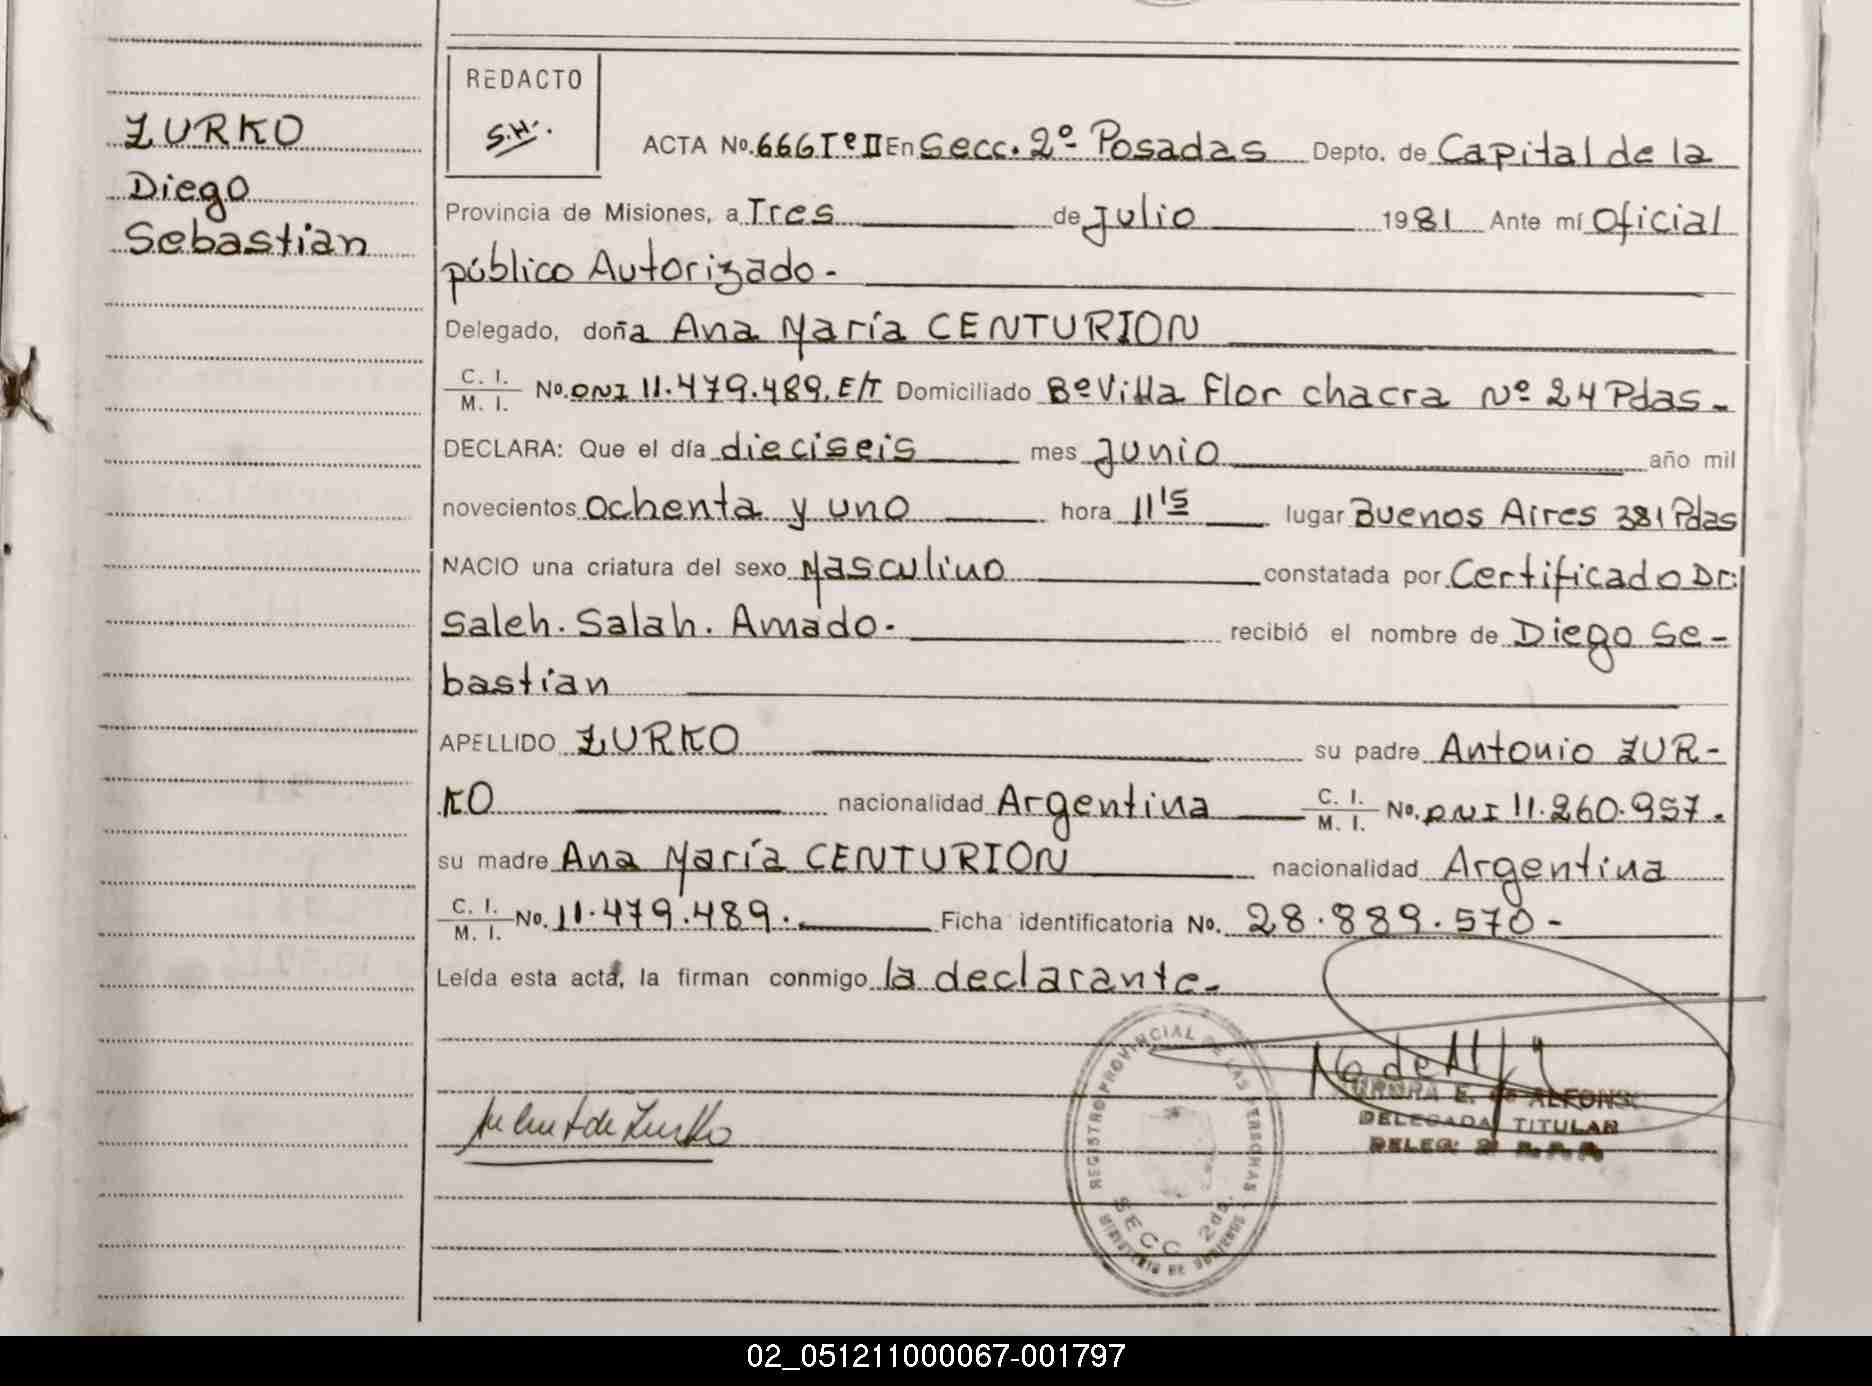 ZURKO
Diego
Sebastian
REDACTO
S.H.
ACTA No. 666 Tº II En Secc. 2º Posadas Depto. de Capital de la
Provincia de Misiones, a Tres de Julio 1981 Ante mí Oficial
público Autorizado -
Delegado, doña Ana María CENTURION
C. I. / M. I. No. DNI 11.479.489. E/T Domiciliado Bº Villa Flor chacra Nº 24 Pdas -
DECLARA: Que el día dieciseis mes Junio año mil
novecientos ochenta y uno hora 11'5 lugar Buenos Aires 381 Pdas
NACIO una criatura del sexo Masculino constatada por Certificado Dr:
Saleh. Salah. Amado - recibió el nombre de Diego Se-
bastian
APELLIDO ZURKO su padre Antonio ZUR-
KO nacionalidad Argentina C. I. / M. I. No. DNI 11.260.957.
su madre Ana María CENTURION nacionalidad Argentina
C. I. / M. I. No. 11.479.489. Ficha identificatoria No. 28.889.570 -
Leída esta acta, la firman conmigo la declarante -
REGISTRO PROVINCIAL DE LAS PERSONAS
SECC 2da.
MINISTERIO DE GOBIERNO
de Zurko
E. de ALFONSO
DELEGADA TITULAR
DELEG. 2
02_051211000067-001797